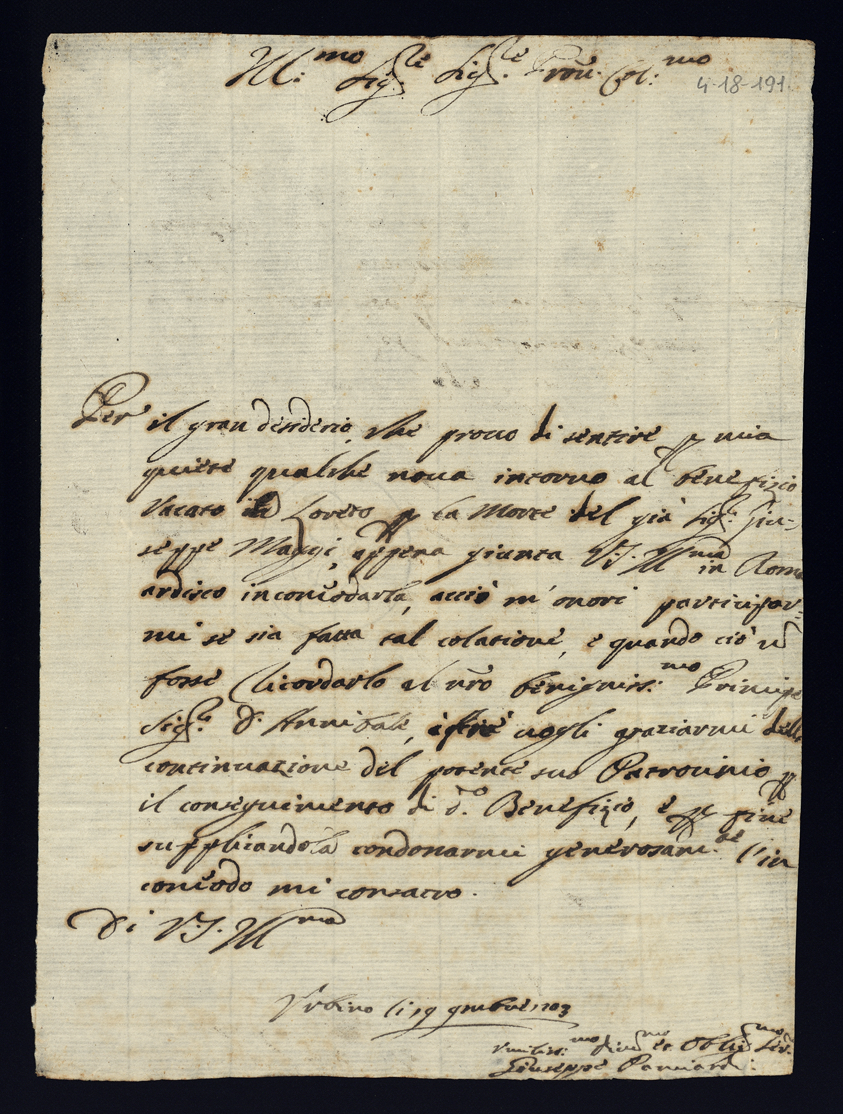 Ill:mo Sig.re Sig.re Prõn. Col:mo
4-18-191.
Per il gran desiderio, che prouo di sentire p mia
quiete qualche noua intorno al benefizio
Vacato Loreto p la Morte del già Sig.r Giu-
seppe Maggi, appena giunta V.S. Ill.ma in Roma
ardisco incom̃odarla, acciò m'onori participar-
mi se sia fatta tal colatione, e quando ciò ñ
fosse ricordarlo al ñro benigniss:mo Principe
Sig.re D. Annibale, uogli graziarmi della
continuazione del potente suo Patrocinio p
il conseguimento di d.o Benefizio, e p fine
supplicandola condonarmi generosam.te l'in
com̃odo mi consacro.
Di V.S. Ill.ma
Vrbino li 19 9mbre 1703
Vmiliss:mo Diu:mo et Oblig:mo Ser.
Giuseppe